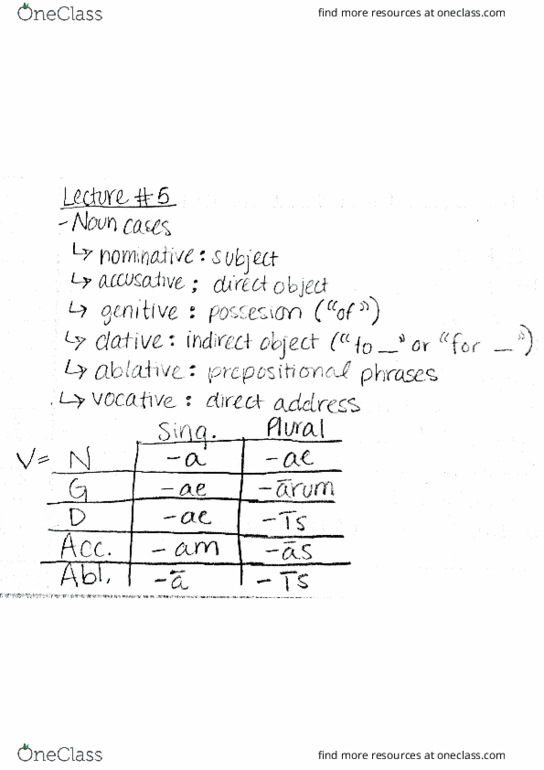 OneClass find more resources at oneclass.com
Lecture #5
- Noun cases
↳ nominative : subject
↳ accusative ; direct object
↳ genitive : possesion ("of")
↳ dative : indirect object ("to _" or "for _")
↳ ablative : prepositional phrases
↳ vocative : direct address
Sing. Plural
V= N -a -ae
G -ae -ārum
D -ae -īs
Acc. -am -ās
Abl. -ā -īs
OneClass find more resources at oneclass.com